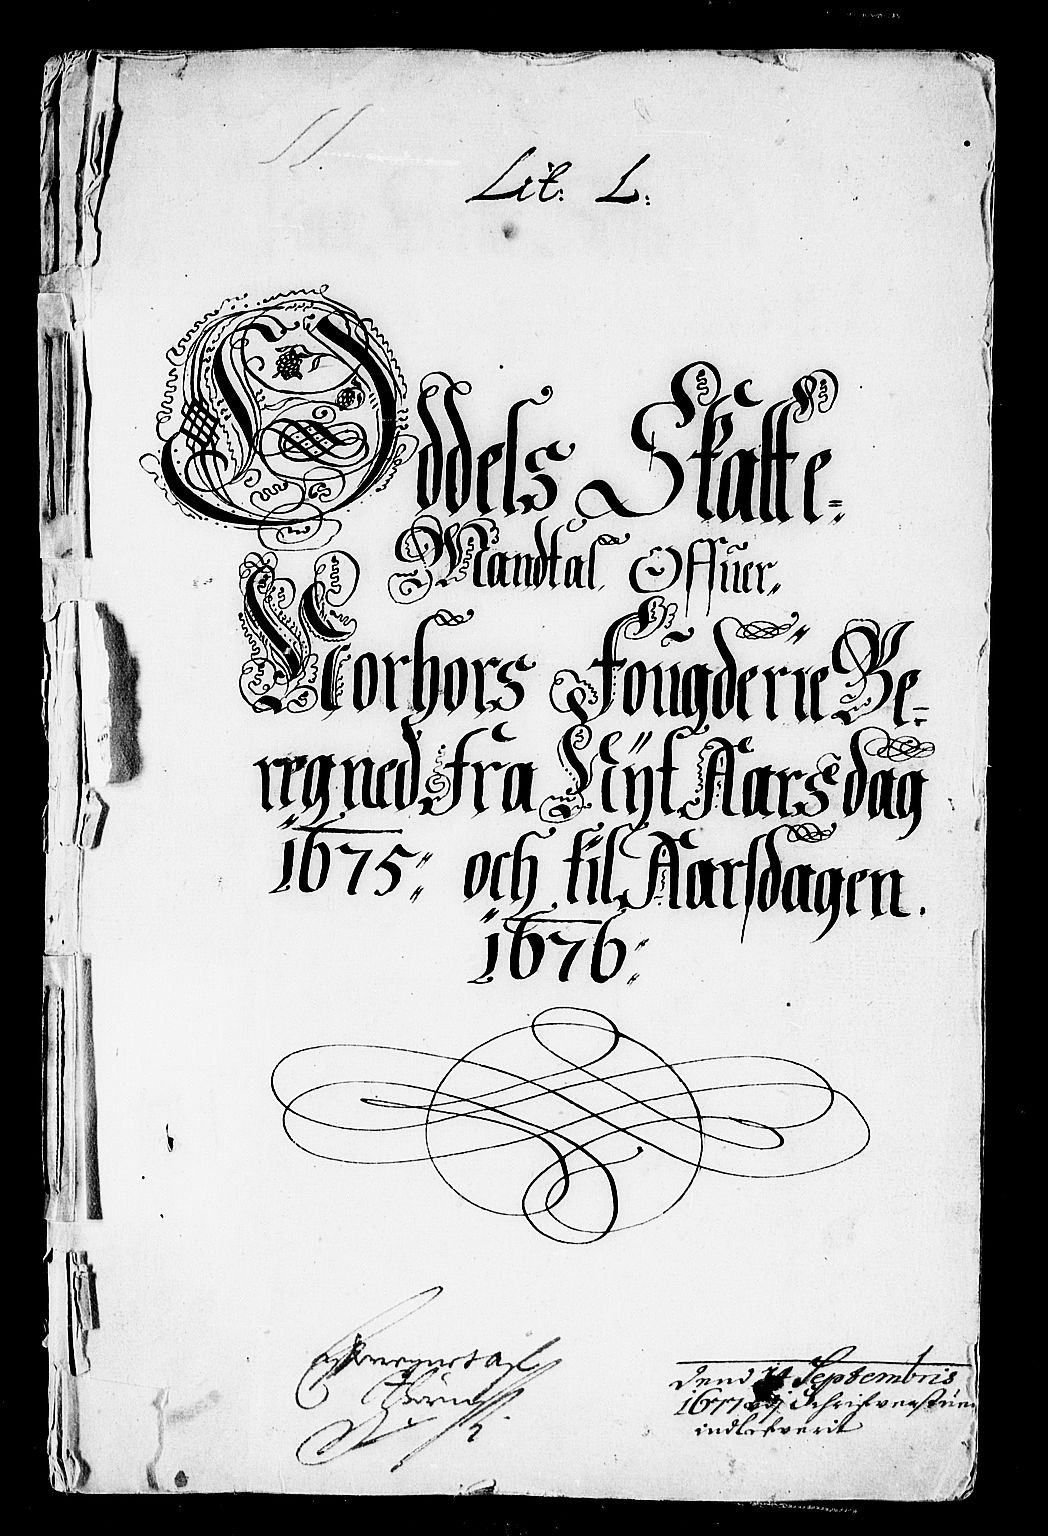 Lit: L:
Oddels Skatte=
Mandtal Offuer
Norhors Fougderie Be=
regned fra Nyt Aars dag
1675: och til Aarsdagen.
1676:
Dend 14 Septembris
1677 udj Schrifverstuen
indlefverit